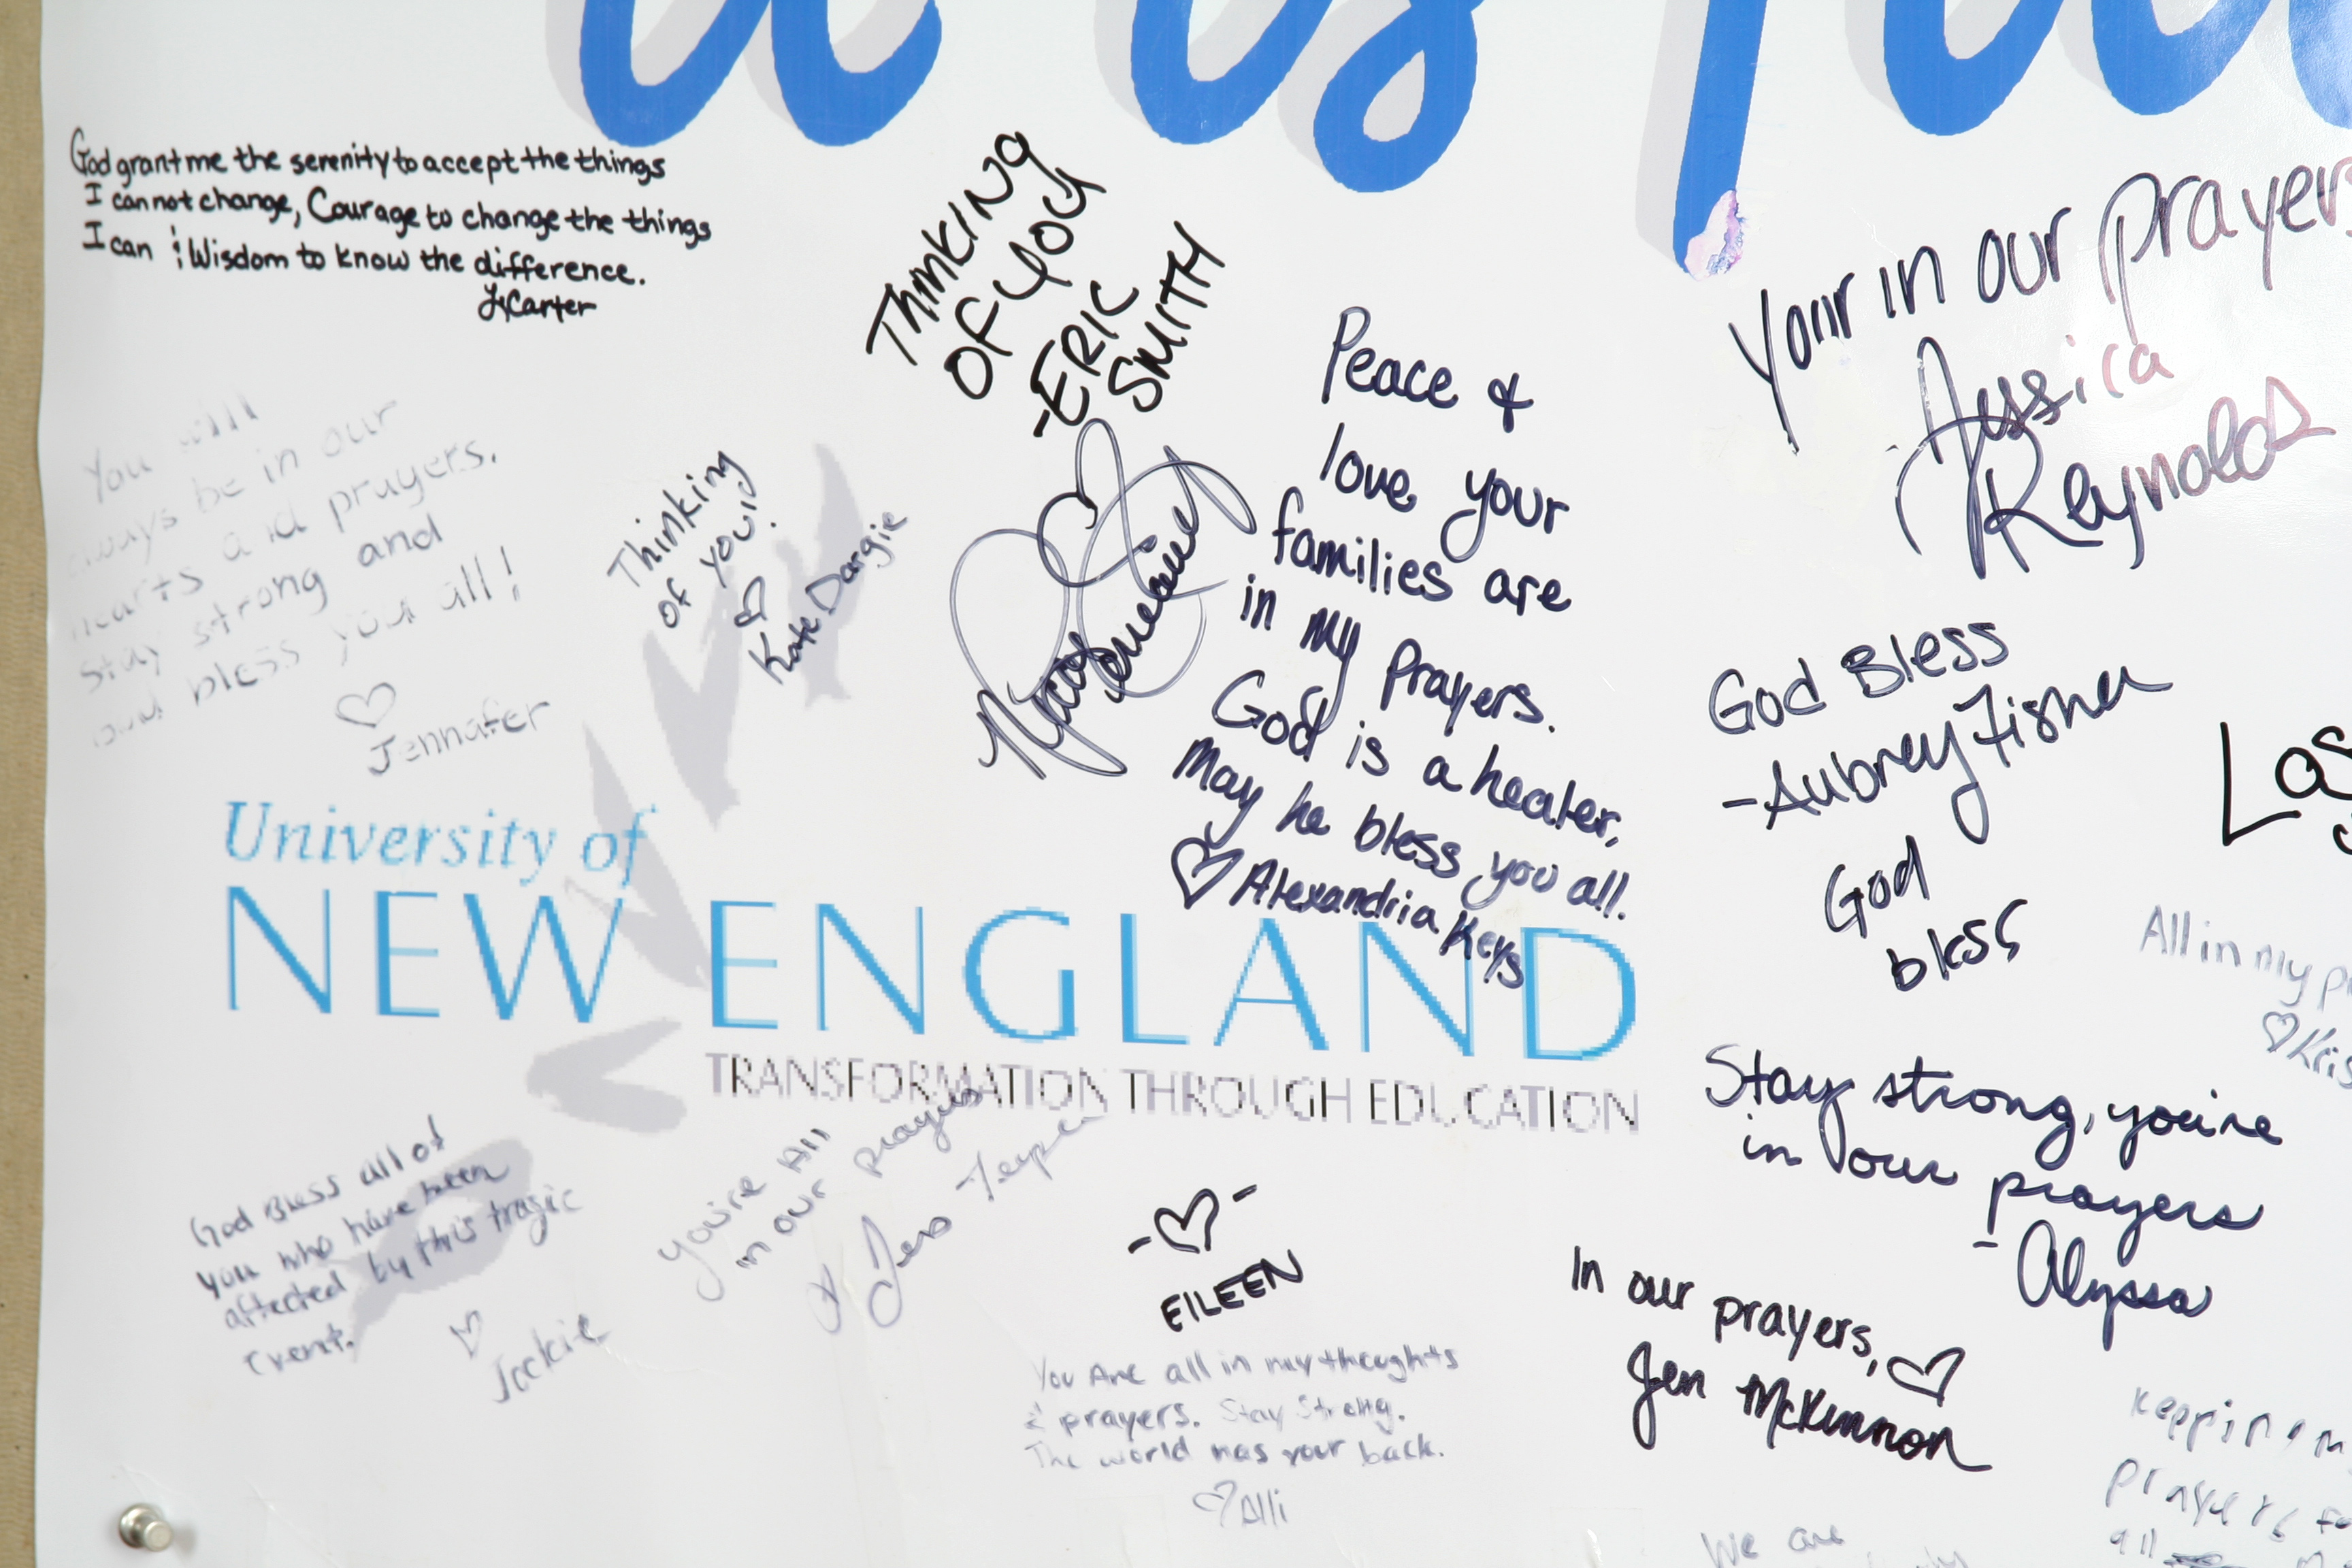 God grant me the serenity to accept the things
I cannot change, Courage to change the things
I can & Wisdom to know the difference.
Carter
Thinking
of you
-Eric
Smith
Your in our prayers
Jessica
Reynolds
Peace &
love your
families are
in my prayers.
God is a healer,
May he bless you all.
♡ Alexandria Keys
You will
always be in our
hearts and prayers.
Stay strong and
bless you all!
♡
Jennafer
Thinking
of you!
♡
Kate Dargie
God Bless
-Aubrey Fisher
God
bless
University of
NEW ENGLAND
TRANSFORMATION THROUGH EDUCATION
All in my
♡ Kris
Stay strong, you're
in our prayers
- Alyssa
God Bless all of
you who have been
affected by this tragic
event.
♡
Jackie
you're All
in our prayers
Jess
-♡-
EILEEN
In our prayers, ♡
Jen McKinnon
You Are all in my thoughts
& prayers. Stay Strong.
The world has your back.
♡ Alli
Kepping
prayers
all
We are